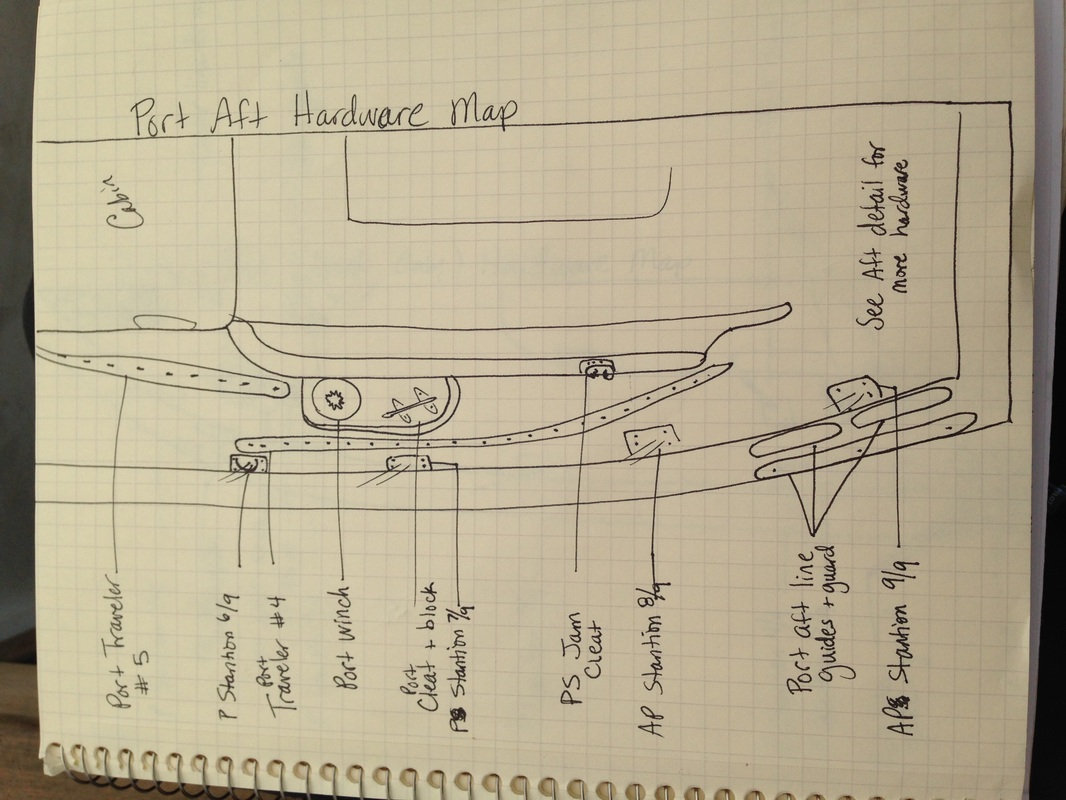 Port Aft Hardware Map
Cabin
See Aft detail for
more hardware
Port Traveler
#5
P Stantion 6/9
Port
Traveler #4
Port winch
Port
Cleat + block
P Stantion 7/9
PS Jam
Cleat
AP Stantion 8/9
Port aft line
guides + guard
AP Stantion 9/9